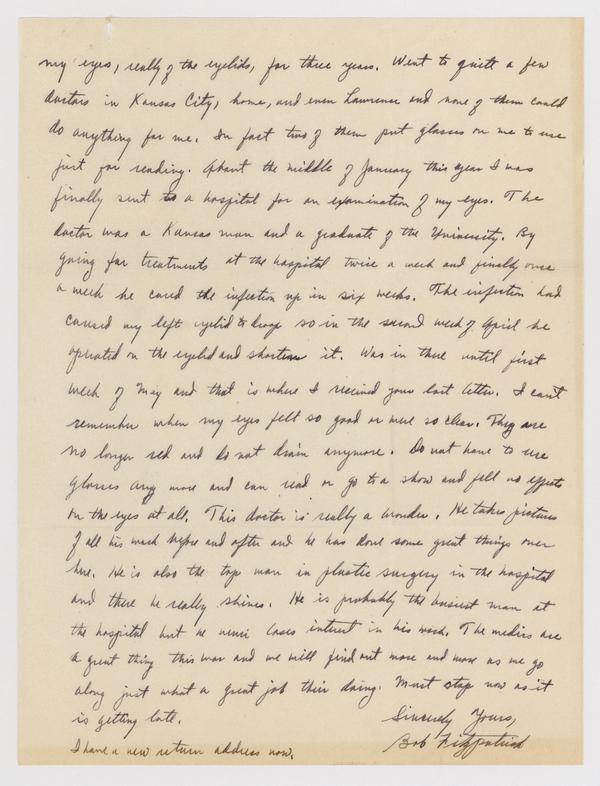 my eyes, really of the eyelids, for three years. Went to quite a few
doctors in Kansas City, home, and even Lawrence and none of them could
do anything for me. In fact two of them put glasses on me to use
just for reading. About the middle of January this year I was
finally sent to a hospital for an examination of my eyes. The
doctor was a Kansas man and a graduate of the University. By
going for treatments at the hospital twice a week and finally once
a week he cured the infection up in six weeks. The infection had
caused my left eyelid to droop so in the second week of April he
operated on the eyelid and shorten it. Was in there until first
week of May and that is where I received your last letter. I can't
remember when my eyes felt so good or were so clear. They are
no longer red and do not drain anymore. Do not have to use
glasses any more and can read or go to a show and fell no effects
on the eyes at all. This doctor is really a wonder. He takes pictures
of all his work before and after and he has done some great things over
here. He is also the top man in plastic surgery in the hospital
and there he really shines. He is probably the busiest man at
the hospital but he never loses interest in his work. The medics are
a great thing this war and we will find out more and more as we go
along just what a great job their doing. Must stop now as it
is getting late.
Sincerely Yours,
Bob Fitzpatrick
I have a new return address now.